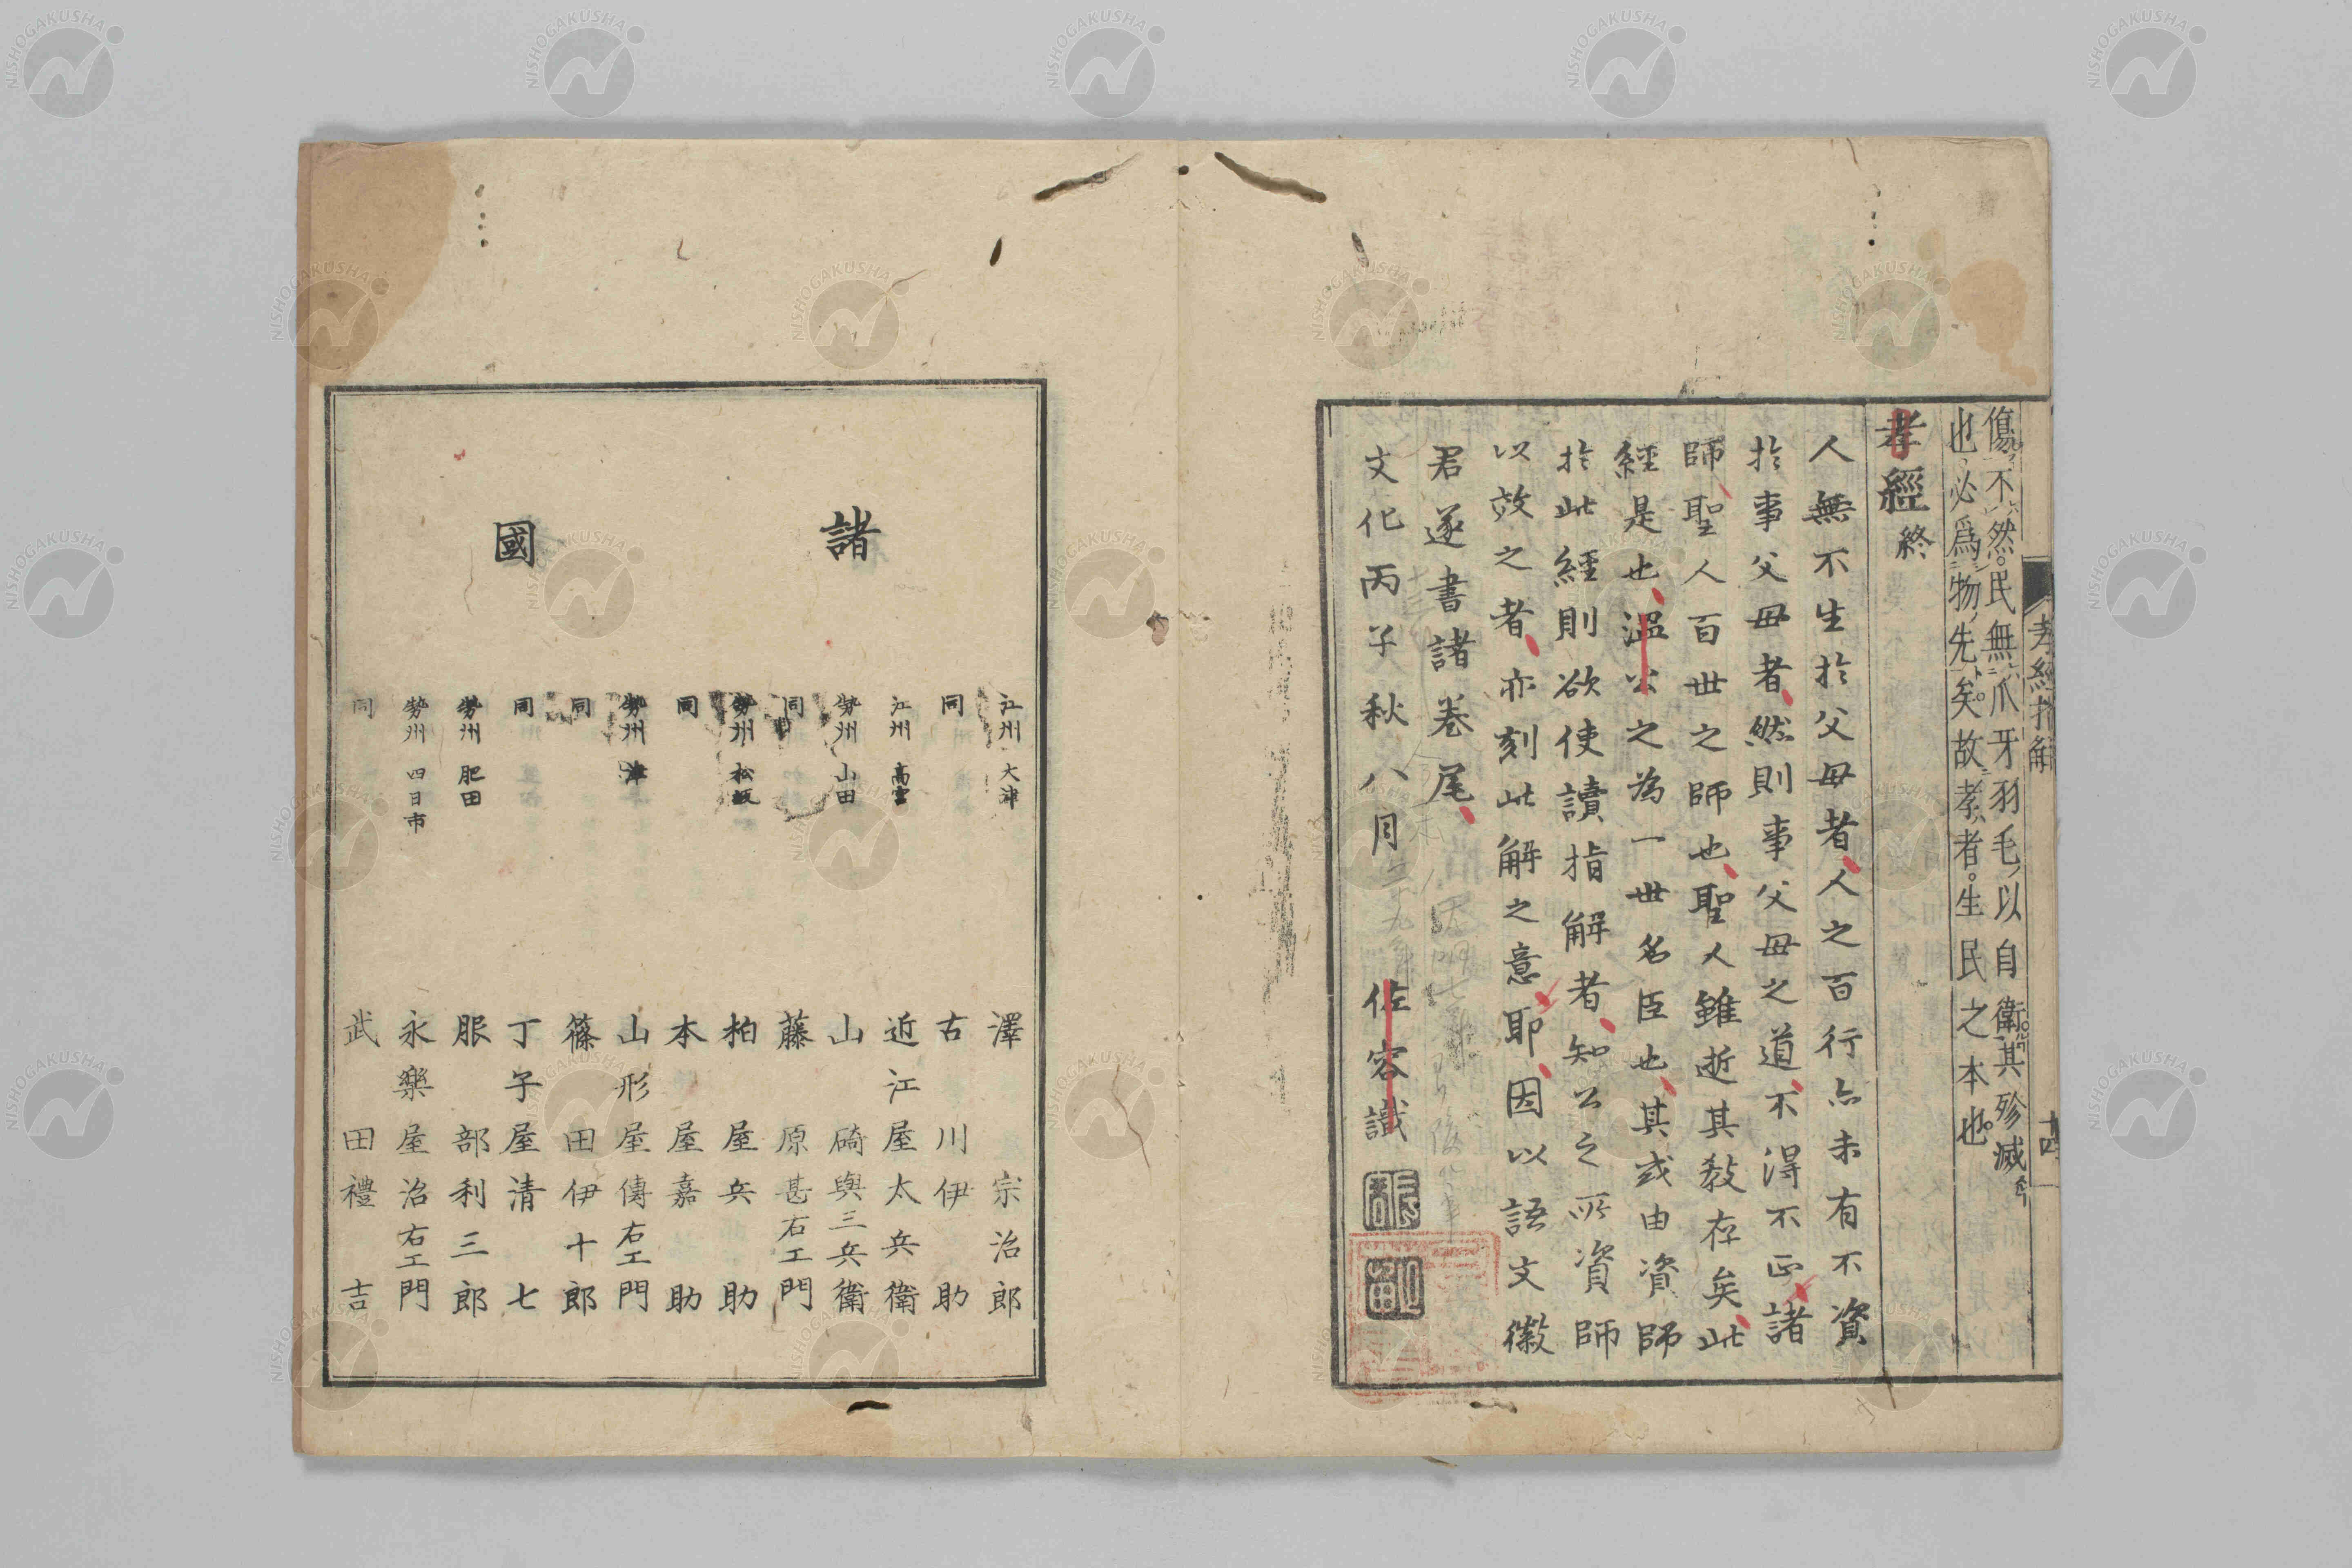 傷不然。民無爪牙羽毛以自衛其殄滅
也必爲物先矣故孝者。生民之本也
孝經終
人無不生於父母者人之百行亦未有不資
於事父母者然則事父母之道不得不正諸
師聖人百世之師也聖人雖逝其教存矣此
經是也溫公之為一世名臣也其或由資師
於此經則欲使讀指解者知公之所資師
以效之者亦刻此解之意耶因以語文徽
君遂書諸卷尾
文化丙子秋八月 佐容識
諸國
江州 大津 澤宗治郎
同 古川伊助
江州 高宮 近江屋太兵衛
勢州 山田 山碕與三兵衛
同 藤原甚右エ門
勢州 松坂 柏屋兵助
同 本屋嘉助
勢州 津 山形屋傳右エ門
同 篠田伊十郎
同 丁子屋清七
勢州 肥田 服部利三郎
勢州 四日市 永樂屋治右エ門
同 武田禮吉
NISHOGAKUSHA